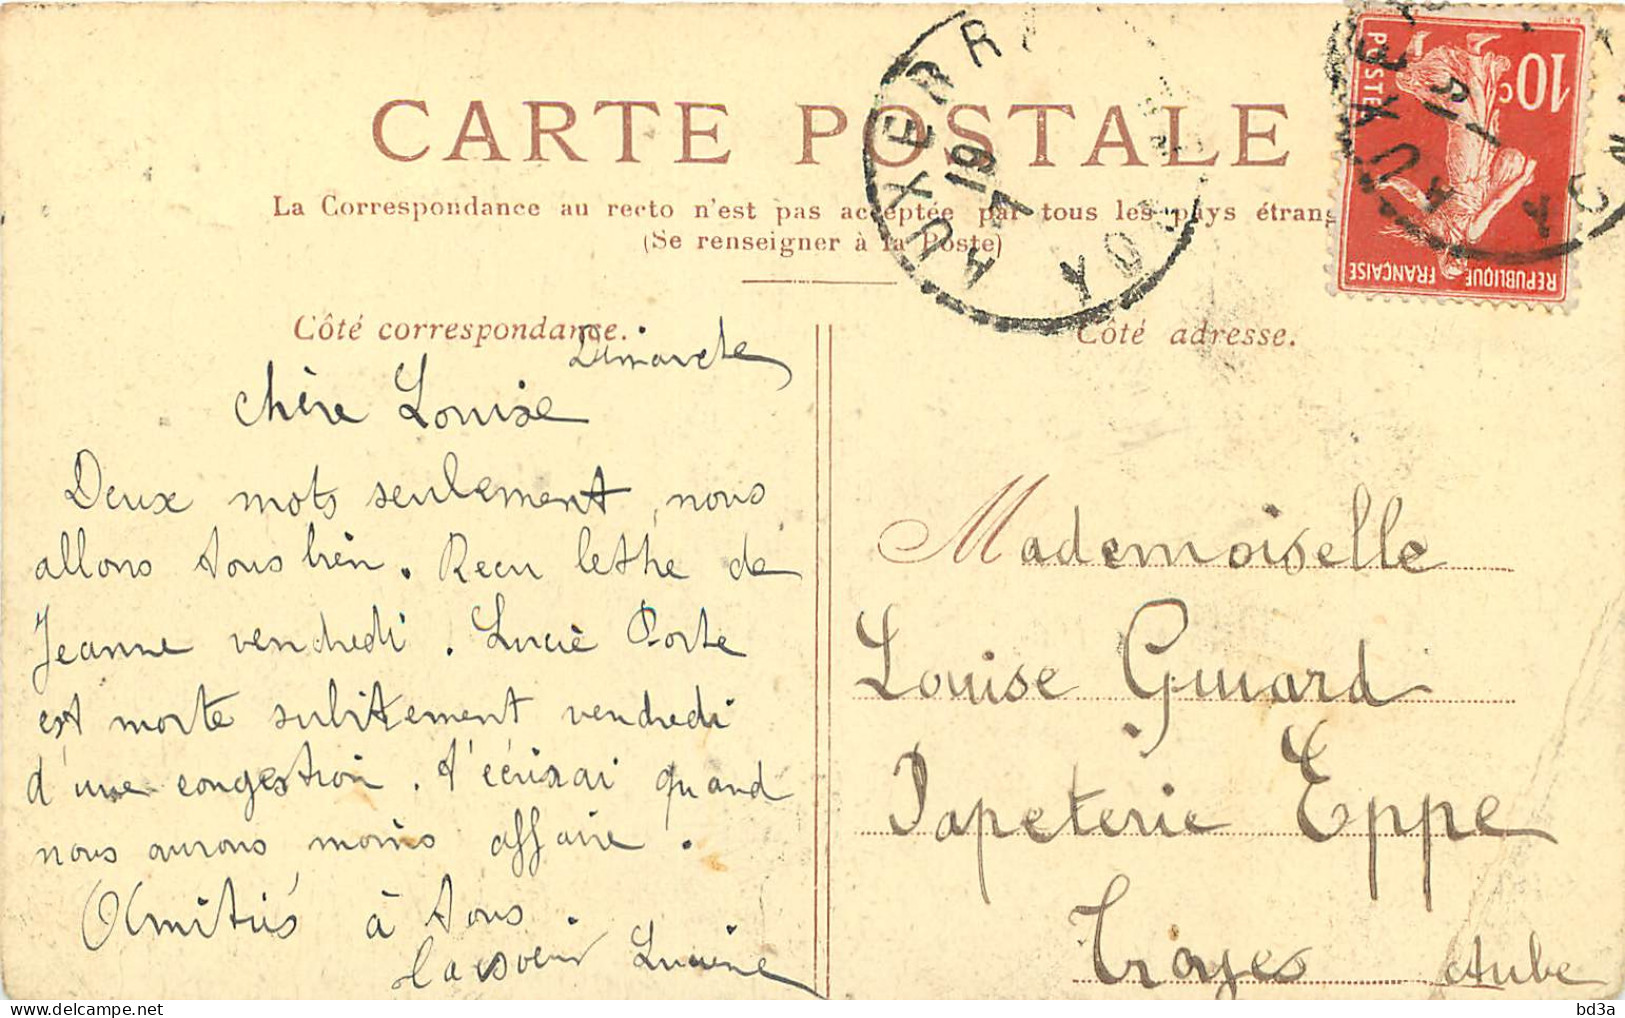 CARTE POSTALE
La Correspondance au recto n'est pas acceptée par tous les pays étrang
(Se renseigner à la Poste)
AUXERR
19
7
YONNE
10c
POSTES
REPUBLIQUE FRANÇAISE
AUXE
Côté correspondance.
Dimanche
Chère Louise
Deux mots seulement, nous
allons tous bien. Reçu lettre de
Jeanne vendredi. Lucie Porte
est morte subitement vendredi
d'une congestion. t'écrirai quand
nous aurons moins affaire.
Amitiés à tous.
Ta soeur Lucine
Côté adresse.
Mademoiselle
Louise Guuard
Papeterie Eppe
Troyes Aube
bd3a